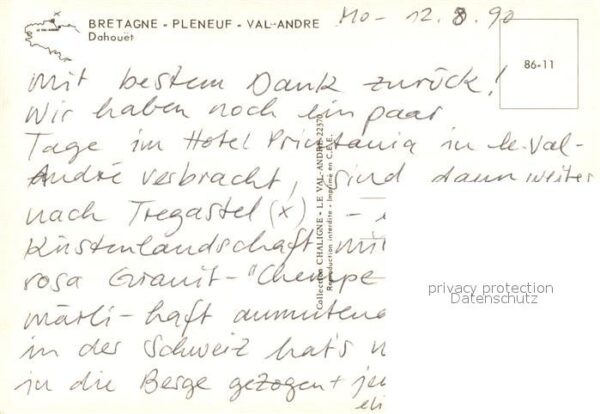 BRETAGNE - PLENEUF - VAL-ANDRE
Dahouët
Mo- 12.8.90
86-11
mit bestem Dank zurück!
Wir haben noch ein paar
Tage im Hotel Printania in le-Val-
André verbracht, sind dann weiter
nach Tregastel (x) -
Küstenlandschaft mit
rosa Granit-
märli-haft anmutend
in der Schweiz hat's
in die Berge gezogen +
Collection CHALIGNE - LE VAL-ANDRE 22370
Reproduction interdite - Imprimé en C.E.E.
privacy protection
Datenschutz